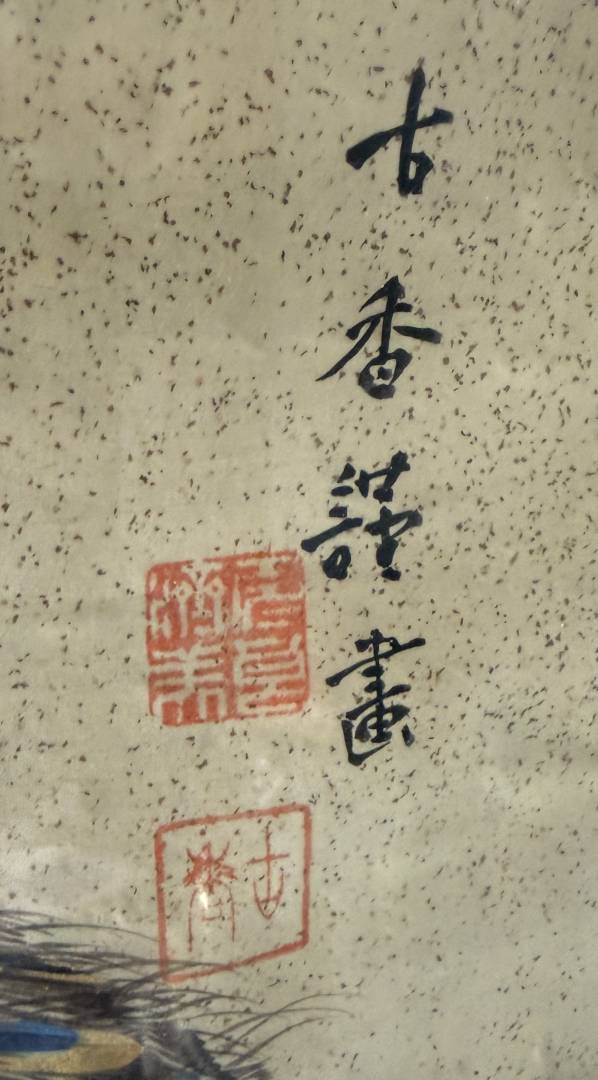 古香謹畫
古香